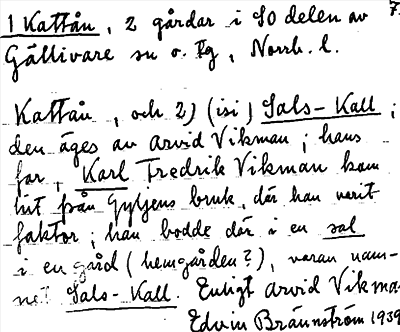 1 Kattån, 2 gårdar i SO delen av 7.
Gällivare sn o. tg, Norrb. l.
Kattån, och 2) (isi) Sals-Kall;
den äges av Arvid Vikman; hans
far, Karl Fredrik Vikman kom
hit från Gyljens bruk, där han varit
faktor; han bodde där i en sal
i en gård (hemgården?), varan nam-
net Sals-Kall. Enligt Arvid Vikma
Edvin Brännström 1939